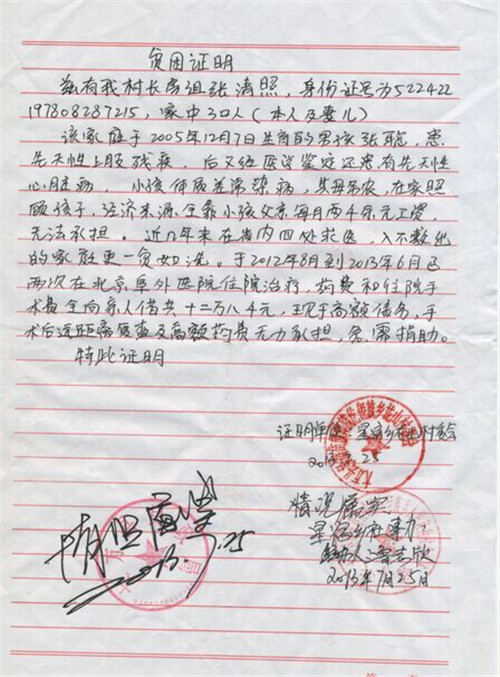 贫困证明
兹有我村长房组张清照，身份证号为522422
197808287215，家中3口人（本人及妻儿）
该家庭于2005年12月7日生育的男孩张聪，患
先天性上肢残疾，后又经医资鉴定还患有先天性
心脏病，小孩体质差常犯病，其母务农，在家照
顾孩子，经济来源全靠小孩父亲每月两千来元工资，
无法承担。近几年来在省内四处求医，入不敷出
的家庭更一贫如洗。于2012年8月到2013年6月已
两次在北京阜外医院住院治疗，药费和住院手
术费全向亲人借共十二万八千元，现于高额债务，手
术后远距离复查及高额药费无力承担，急需捐助。
特此证明
证明单位：星宿乡 村委会
2013 25
情况属实
2013.7.25
星宿乡
经办人：
2013年7月25日